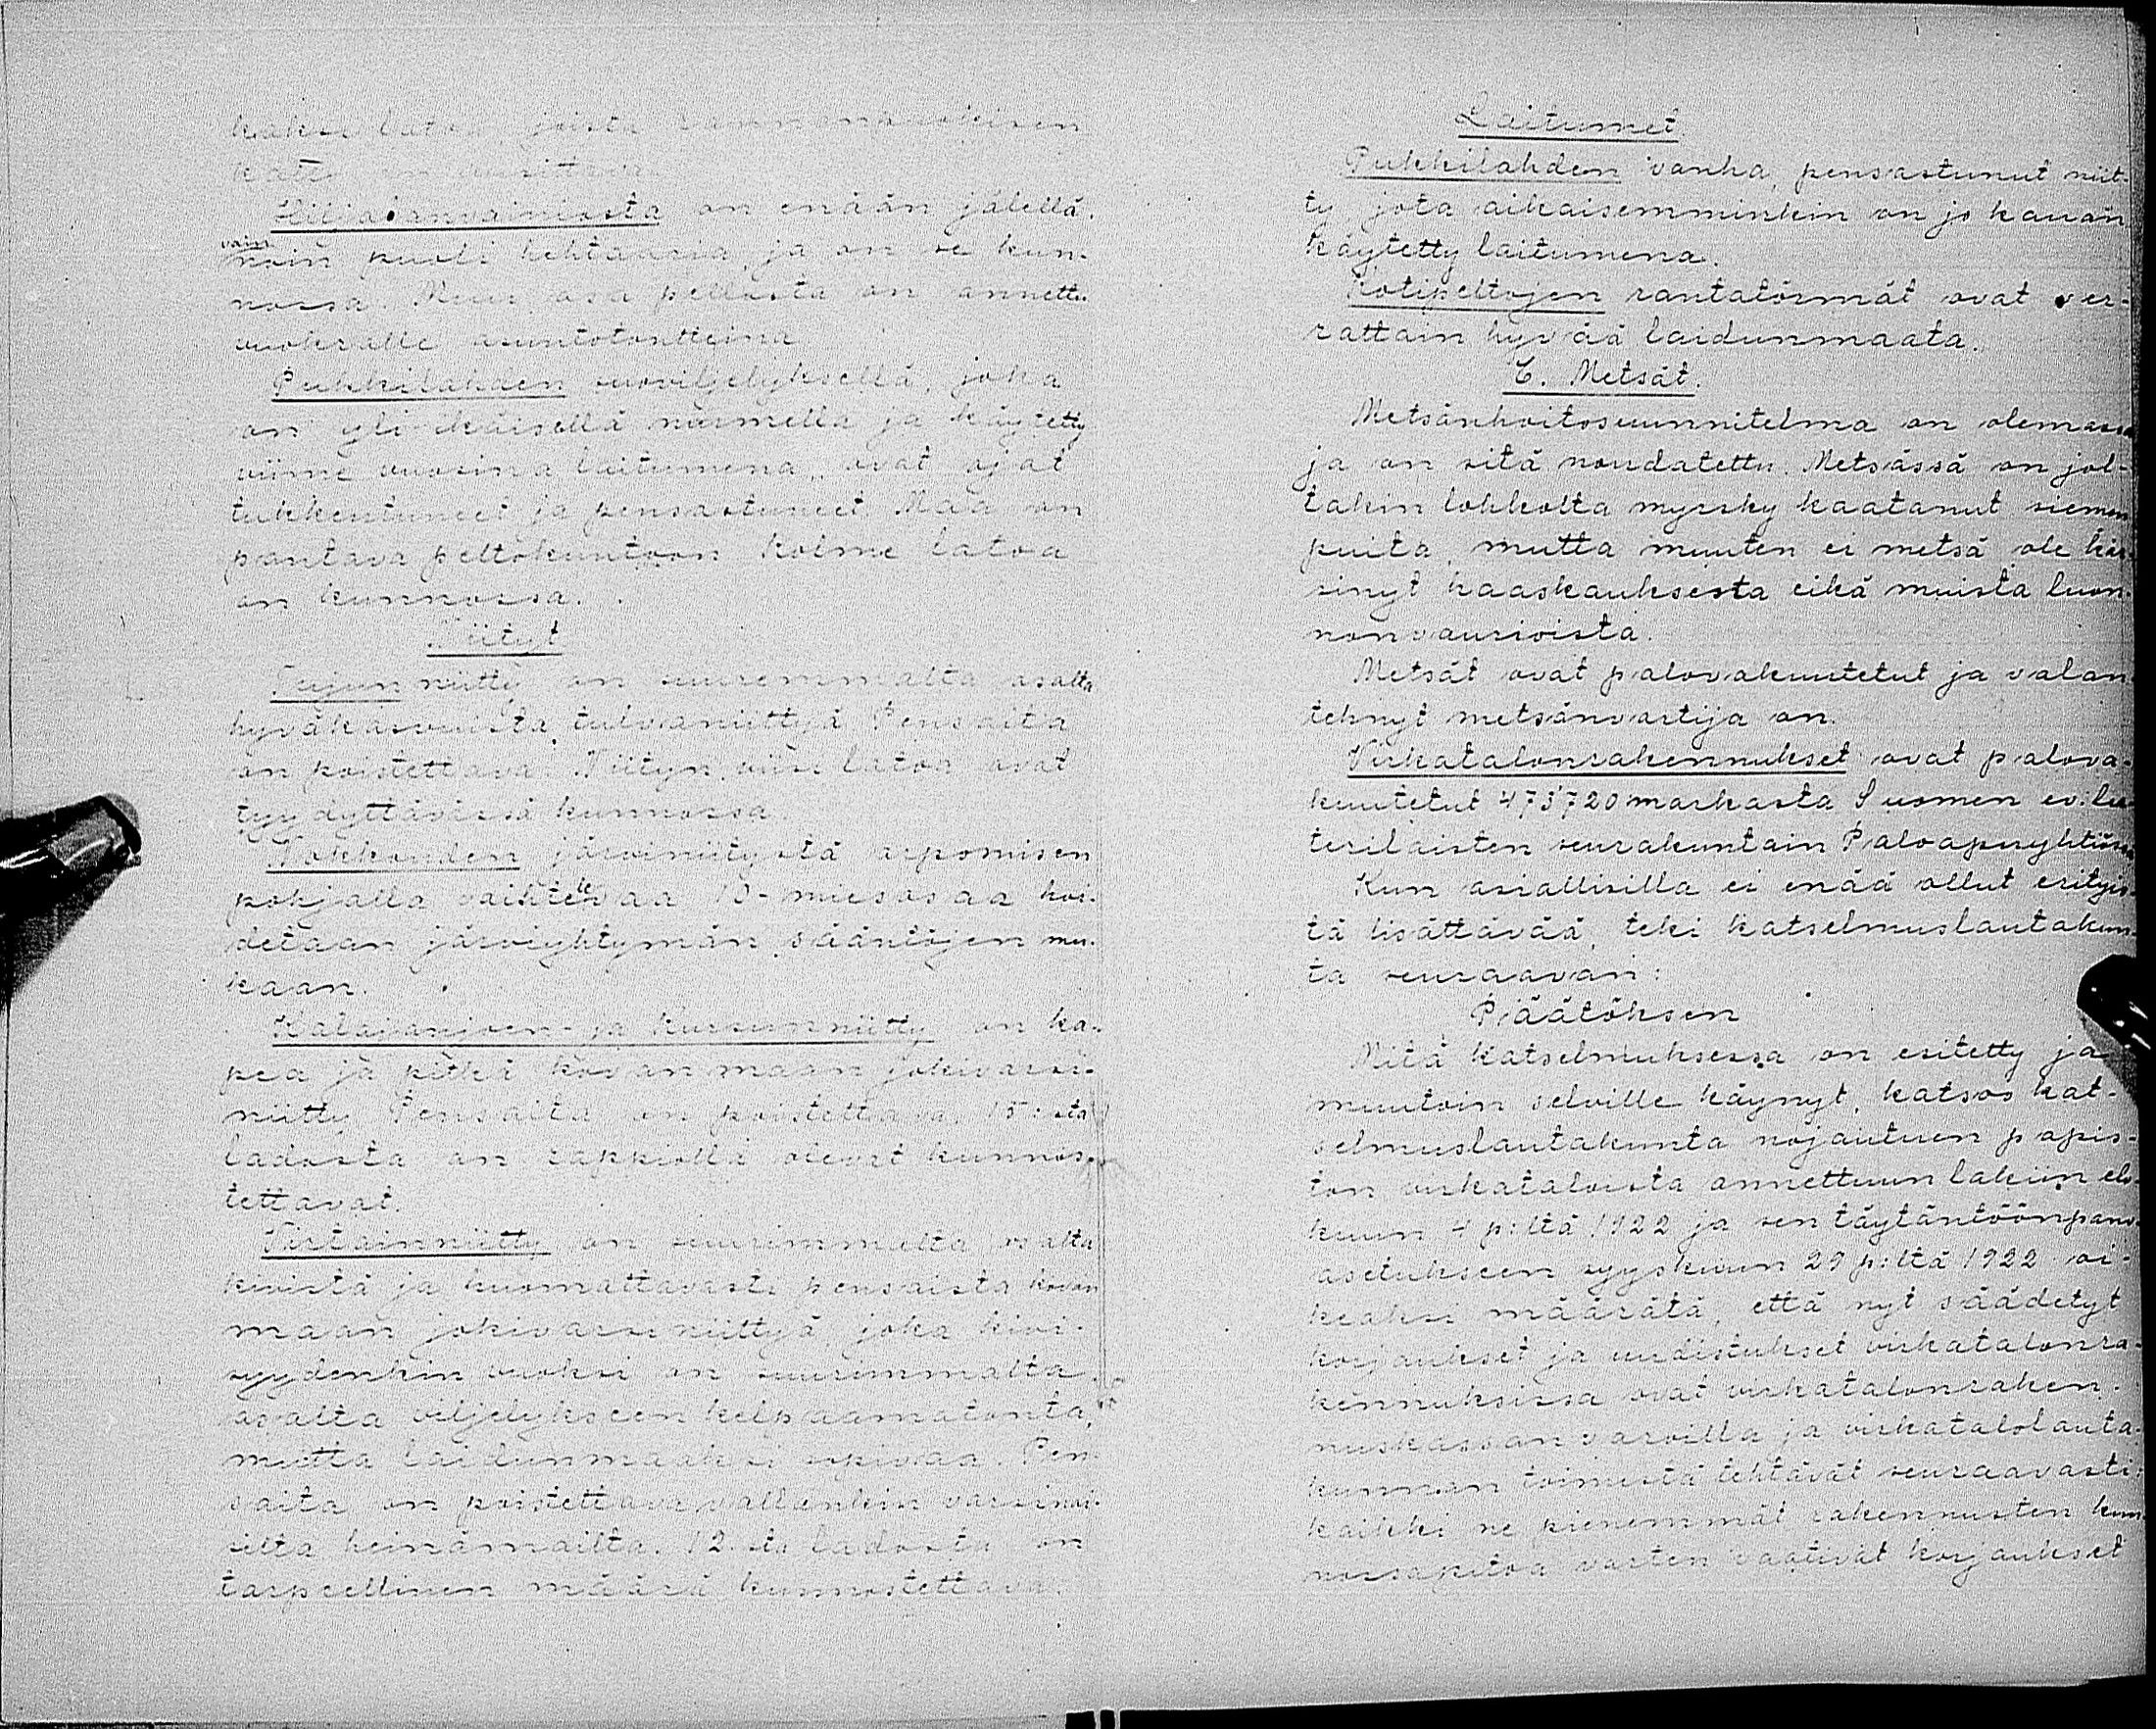 kaksi latoa, joista rannanpuoleisen
katto on uusittava.
on enään jälellä
vain
noin puoli hehtaaria, ja on se kun-
nossa. Muu osa pellosta on annettu
vuokralle asuntotontteina
Pukkilahden suoviljelyksellä, joka
on yli-ikäisellä nurmella ja käytetty
viime vuosina laitumena, ovat ojat
tukkeutuneet ja pensastuneet. Maa on
pantava peltokuntoon. Kolme latoa
on kunnossa.
Niityt
niitty on suuremmalta osalta
hyväkasvuista tulvaniittyä. Pensaita
on poistettava. Niityn viisi latoa ovat
tyydyttävässä kunnossa.
järviniitystä arpomisen
pohjalla vaihtelevaa 10-miesosaa hoi-
detaan järviyhtymän sääntöjen mu-
kaan.
Kalajanjoen- ja Kursunniitty on ka-
pea ja pitkä kovan maan jokivarsi-
niitty. Pensaita on poistettava. 15:sta
ladosta on rappiolla olevat kunnos-
tettavat.
Virtainniitty on suurimmalta osalta
kivistä ja huomattavasti pensaista kovan
maan jokivarsiniittyä, joka kivi-
syydenkin vuoksi on suurimmalta
osalta viljelykseen kelpaamatonta,
mutta laidunmaaksi sopivaa. Pen-
saita on poistettava vallankin varsinai-
silta heinämailta. 12.sta ladosta on
tarpeellinen määrä kunnostettava.
Laitumet.
Pukkilahden vanha, pensastunut niit-
ty jota aikaisemminkin on jo kauan
käytetty laitumena.
Kotipeltojen rantatörmät ovat ver-
rattain hyvää laidunmaata.
C. Metsät.
Metsänhoitosuunnitelma on olemassa
ja on sitä noudatettu. Metsässä on jol-
takin lohkolta myrsky kaatanut siemen
puita, mutta muuten ei metsä ole kär-
sinyt haaskauksesta eikä muista luon-
nonvaurioista.
Metsät ovat palovakuutetut ja valan
tehnyt metsänvartija on.
Virkatalonrakennukset ovat palova-
kuutetut 473720 markasta Suomen ev. lu-
terilaisten seurakuntain Paloapuyhtiössä
Kun asiallisilla ei enää ollut erityis-
tä lisättävää, teki katselmuslautakun-
ta seuraavan:
Päätöksen
Mitä katselmuksessa on esitetty ja
muutoin selville käynyt, katsoo kat-
selmuslautakunta nojautuen papis-
ton virkataloista annettuun lakiin elo-
kuun 4 p:ltä 1922 ja sen täytäntöönpano-
asetukseen syyskuun 29 p:ltä 1922 oi-
keaksi määrätä, että nyt säädetyt
korjaukset ja uudistukset virkatalonra-
kennuksissa ovat virkatalonraken-
nuskassan varoilla ja virkatalolauta-
kunnan toimesta tehtävät seuraavasti:
kaikki ne pienemmät rakennusten kun
nossapitoa varten vaativat korjaukset